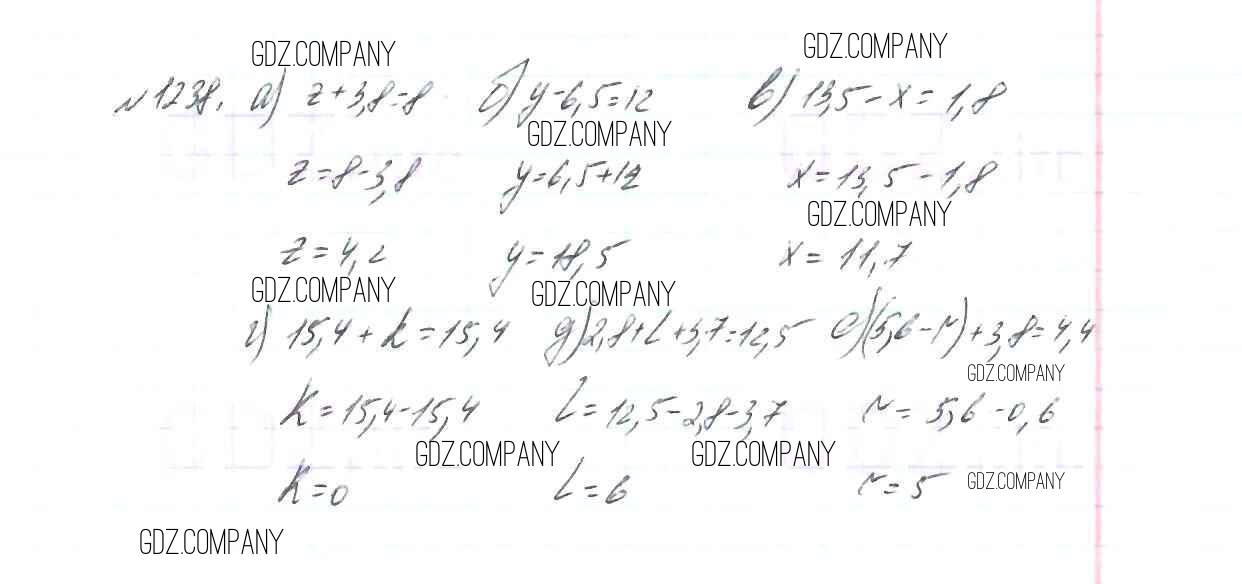 GDZ.COMPANY GDZ.COMPANY
№1238. а) z+3,8=8 б) y-6,5=12 в) 13,5-x=1,8
GDZ.COMPANY
z=8-3,8 y=6,5+12 x=13,5-1,8
GDZ.COMPANY
z=4,2 y=18,5 x=11,7
GDZ.COMPANY GDZ.COMPANY
г) 15,4+k=15,4 д) 2,8+l+3,7=12,5 е) (5,6-r)+3,8=4,4
GDZ.COMPANY
k=15,4-15,4 l=12,5-2,8-3,7 r=5,6-0,6
GDZ.COMPANY GDZ.COMPANY
k=0 l=6 r=5 GDZ.COMPANY
GDZ.COMPANY